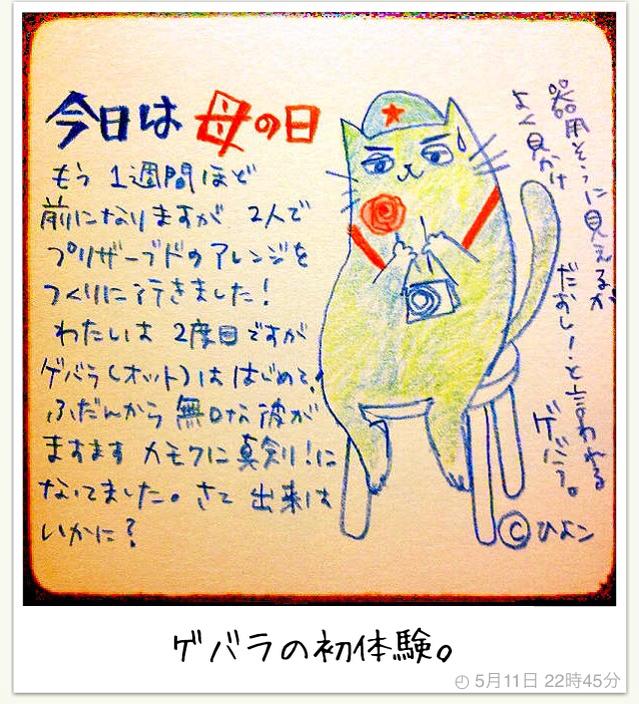 今日は 母の日
もう 1週間ほど
前になりますが 2人で
プリザーブドのアレンジを
つくりに行きました!
わたしは 2度目ですが
ゲバラ(オット)は はじめて。
ふだんから 無口な彼が
ますます カモクに真剣!に
なってました。さて 出来は
いかに?
器用そうに見えるが
よく見かけ
だおし!と言われる
ゲバラ。
©ひよン
ゲバラの初体験。
5月11日 22時45分